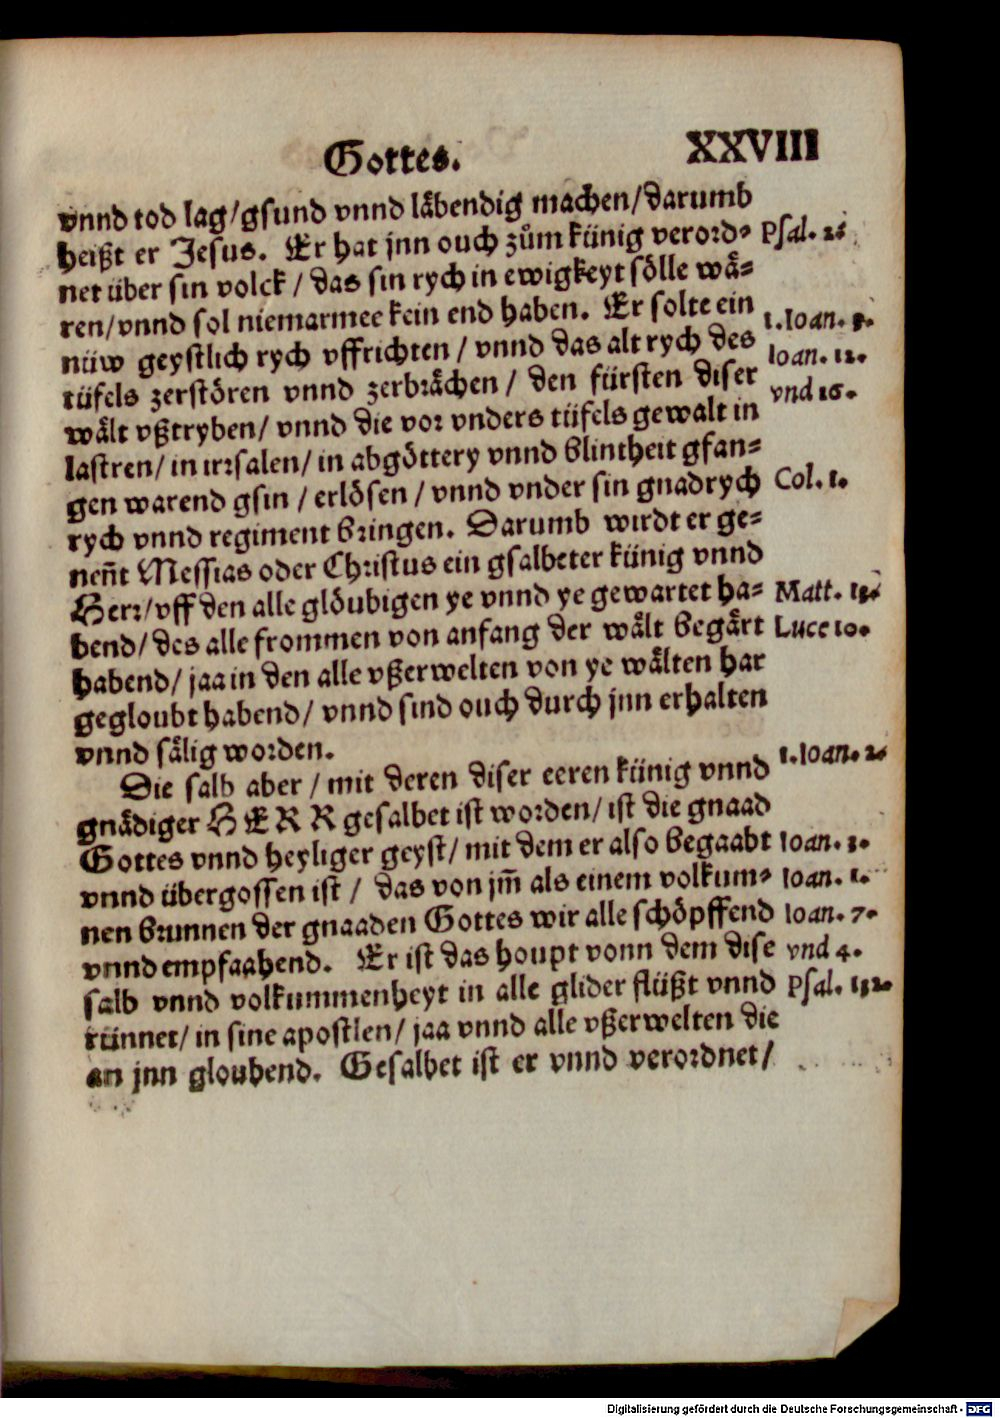 Gottes. XXVIII
vnnd tod lag/gsund vnnd läbendig machen/darumb
heißt er Jesus. Er hat jnn ouch zům künig verord⸗ Psal. 2.
net über sin volck / das sin rych in ewigkeyt sölle wä⸗
ren/vnnd sol niemarmee kein end haben. Er solte ein
nüw geystlich rych vffrichten / vnnd das alt rych des 1.Ioan. 3.
tüfels zerstören vnnd zerbrächen / den fürsten diser Ioan. 12.
wält vßtryben/ vnnd die vor vnders tüfels gewalt in vnd 16.
lastren/ in irrsalen/ in abgöttery vnnd blintheit gfan⸗
gen warend gsin / erlösen / vnnd vnder sin gnadrych Col. 1.
rych vnnd regiment bringen. Darumb wirdt er ge⸗
neñt Messias oder Christus ein gsalbeter künig vnnd
Herr/vff den alle glöubigen ye vnnd ye gewartet ha⸗ Matt. 13.
bend/ des alle frommen von anfang der wält begärt Luce 10.
habend/ jaa in den alle vßerwelten von ye wälten har
gegloubt habend/ vnnd sind ouch durch jnn erhalten
vnnd sälig worden.
Die salb aber / mit deren diser eeren künig vnnd 1.Ioan. 2.
gnädiger HERR gesalbet ist worden/ ist die gnaad
Gottes vnnd heyliger geyst/ mit dem er also begaabt Ioan. 3.
vnnd übergossen ist / das von jm̃ als einem volkum⸗ Ioan. 1.
nen brunnen der gnaaden Gottes wir alle schöpffend Ioan. 7.
vnnd empfaahend. Er ist das houpt vonn dem dise vnd 4.
salb vnnd volkummenheyt in alle glider flüßt vnnd Psal. 132.
rünnet/ in sine apostlen/ jaa vnnd alle vßerwelten die
an jnn gloubend. Gesalbet ist er vnnd verordnet/
Digitalisierung gefördert durch die Deutsche Forschungsgemeinschaft - DFG